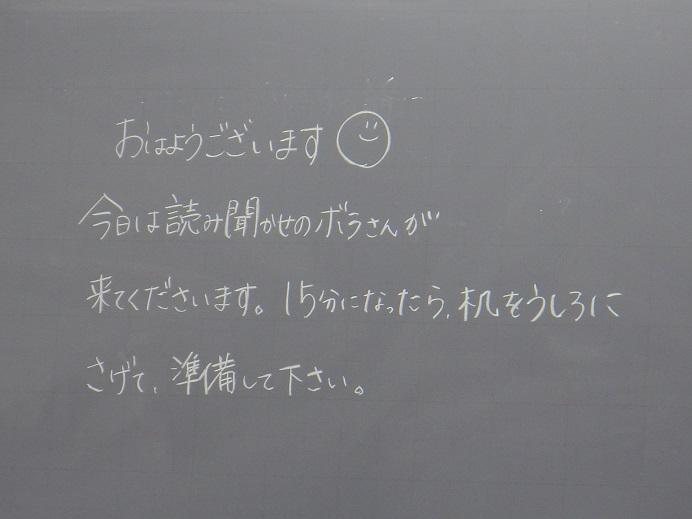 おはようございます
今日は読み聞かせのボラさんが
来てくださいます。15分になったら、机をうしろに
さげて、準備して下さい。